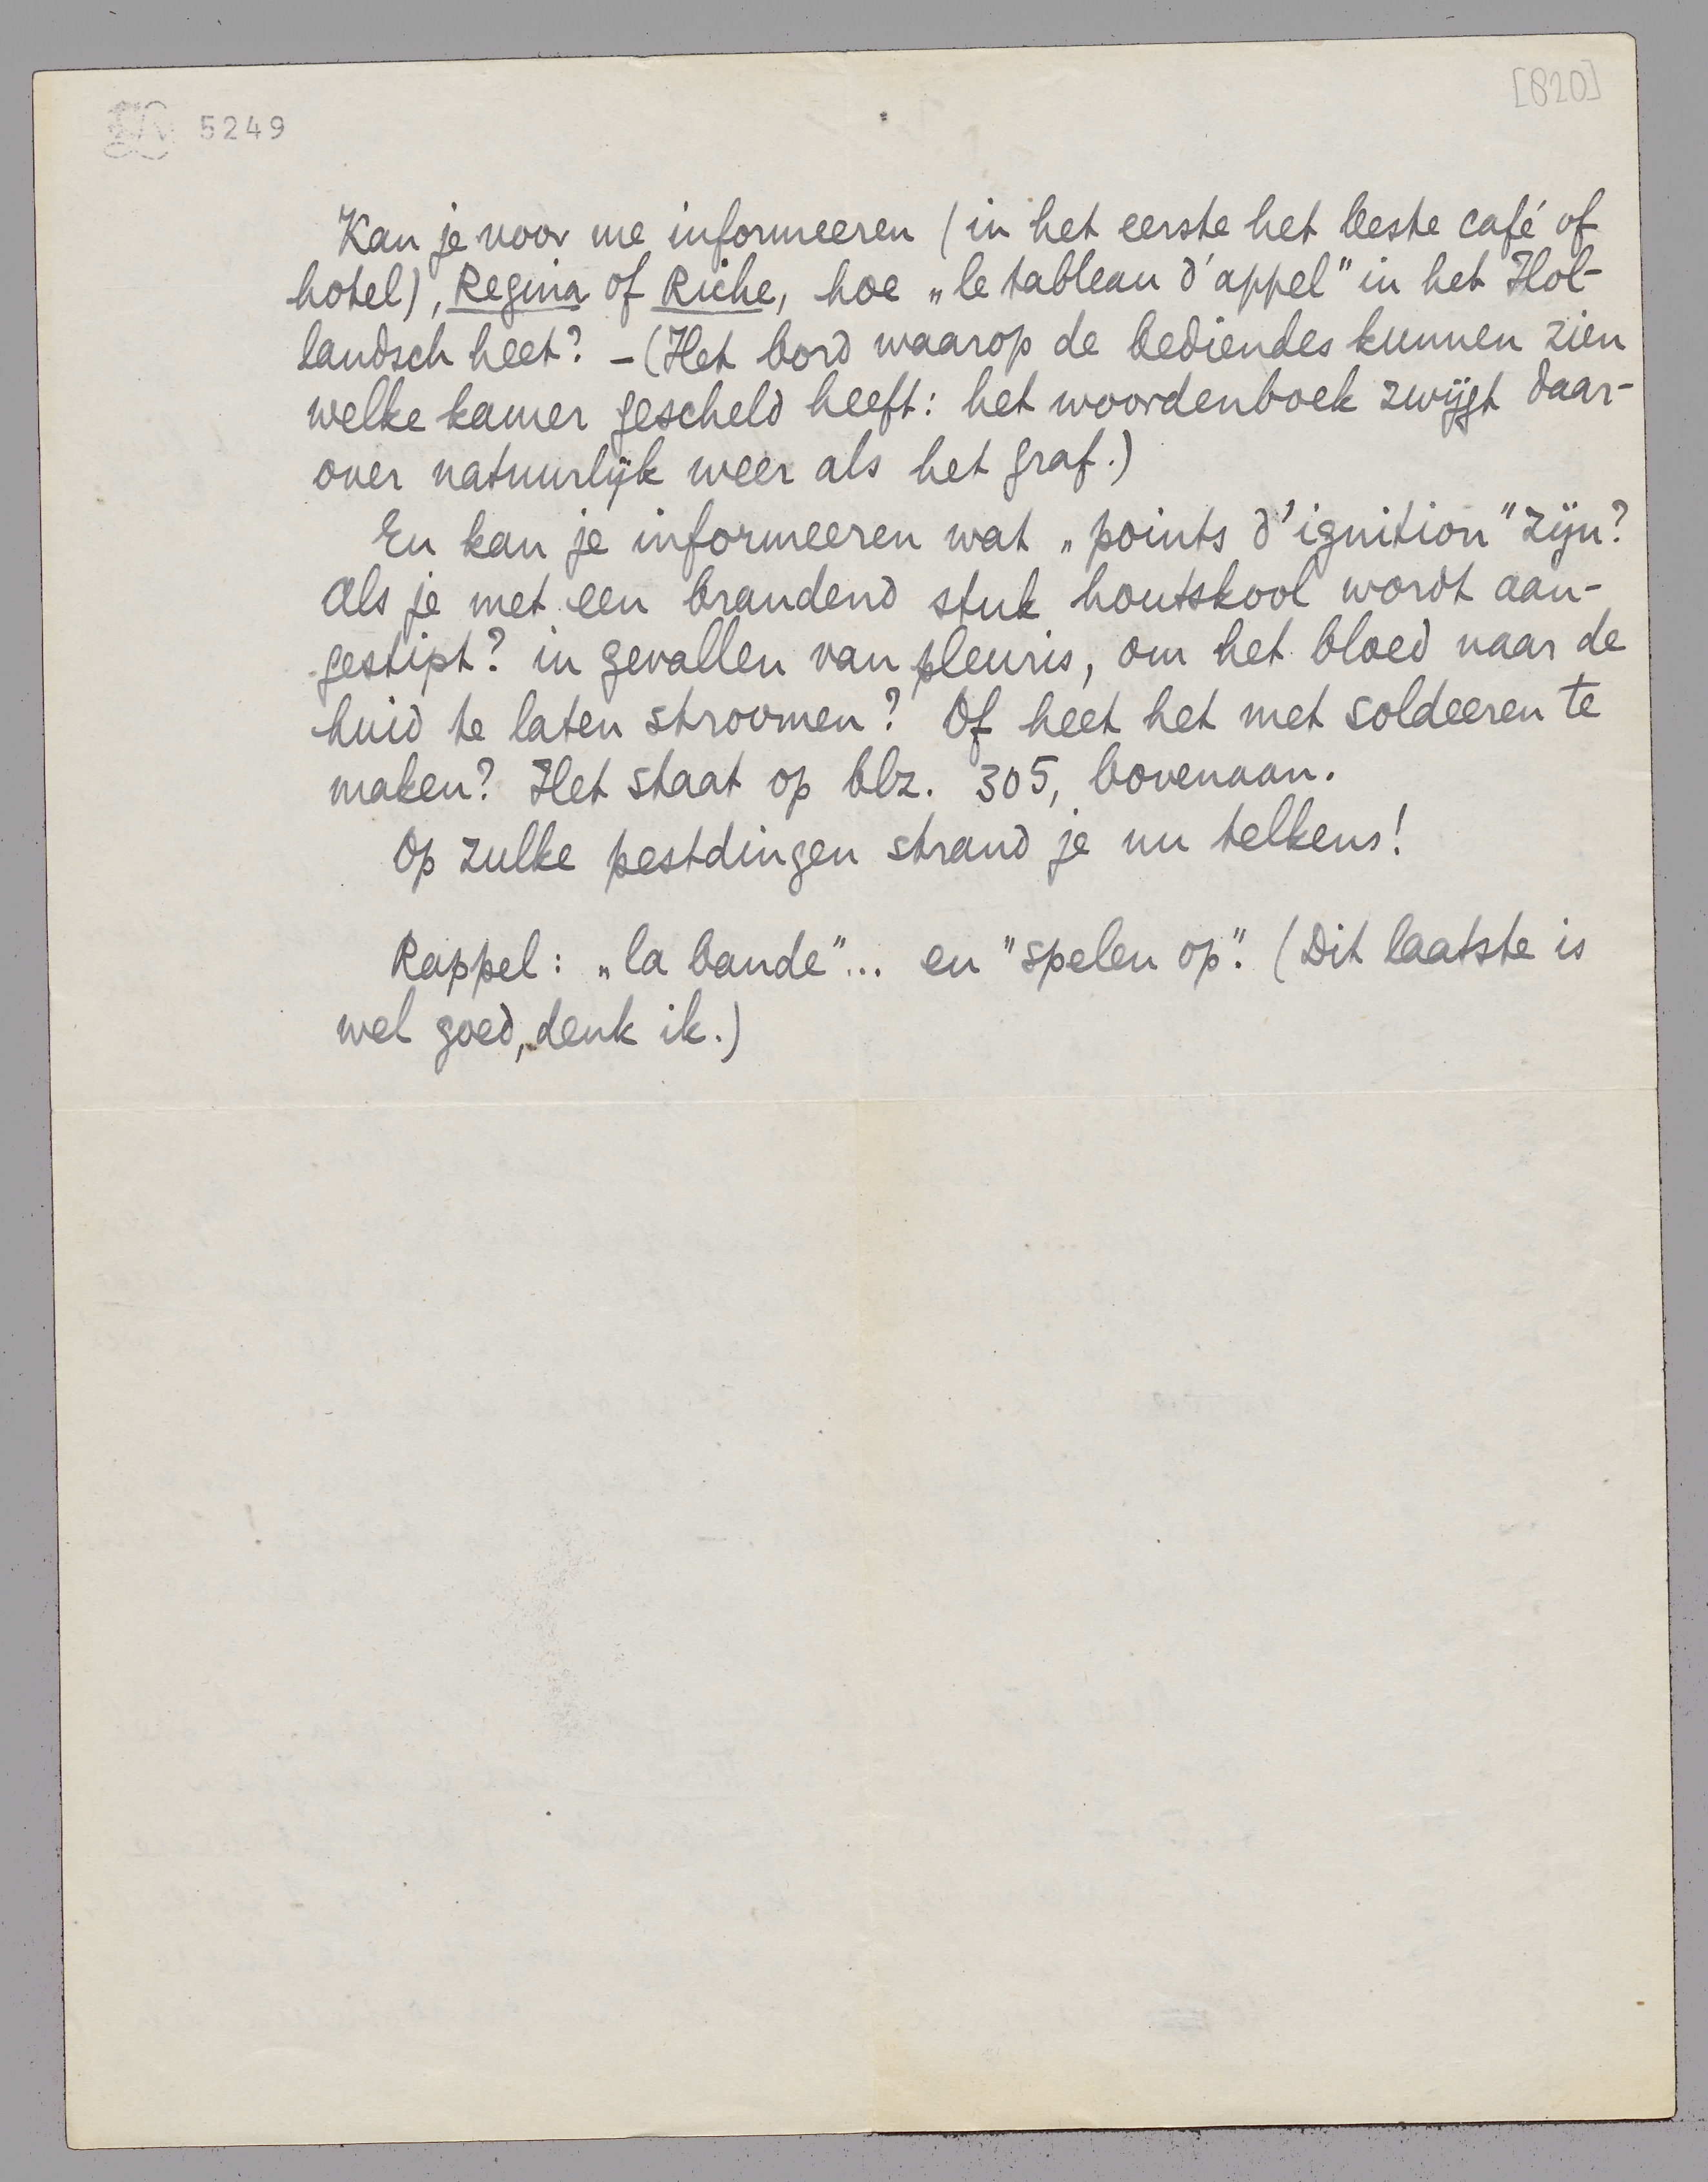 [820]
5249
Kan je voor me informeeren (in het eerste het beste café of
hotel), Regina of Riche, hoe „le tableau d'appel" in het Hol-
landsch heet? – (Het bord waarop de bediendes kunnen zien
welke kamer gescheld heeft: het woordenboek zwijgt daar-
over natuurlijk weer als het graf.)
En kan je informeeren wat „points d'ignition" zijn?
Als je met een brandend stuk houtskool wordt aan-
gestipt? in gevallen van pleuris, om het bloed naar de
huid te laten stroomen? Of heet het met soldeeren te
maken? Het staat op blz. 305, bovenaan.
Op zulke pestdingen strand je nu telkens!
Rappel: „la bande"... en "spelen op". (Dit laatste is
wel goed, denk ik.)